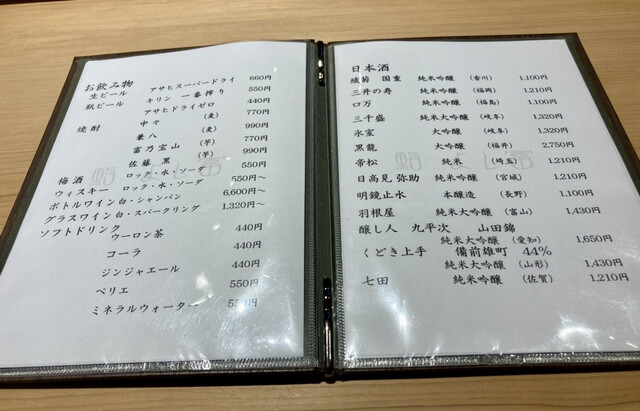 お飲み物
生ビール アサヒスーパードライ 660円
瓶ビール キリン 一番搾り 550円
アサヒドライゼロ 440円
焼酎 中々 (麦) 770円
兼八 (麦) 990円
富乃宝山 (芋) 770円
佐藤 黒 (芋) 990円
梅酒 ロック・水・ソーダ 550円
ウィスキー ロック・水・ソーダ 550円〜
ボトルワイン 白・シャンパン 6,600円〜
グラスワイン 白・スパークリング 1,320円〜
ソフトドリンク
ウーロン茶 440円
コーラ 440円
ジンジャエール 440円
ペリエ 550円
ミネラルウォーター 550円
日本酒
綾菊 国重 純米吟醸 (香川) 1,100円
三井の寿 純米吟醸 (福岡) 1,210円
口万 純米吟醸 (福島) 1,100円
三千盛 純米大吟醸 (岐阜) 1,320円
氷室 大吟醸 (岐阜) 1,320円
黒龍 大吟醸 (福井) 2,750円
帝松 純米 (埼玉) 1,210円
日高見 弥助 純米吟醸 (宮城) 1,210円
明鏡止水 本醸造 (長野) 1,100円
羽根屋 純米大吟醸 (富山) 1,430円
醸し人 九平次 山田錦
純米大吟醸 (愛知) 1,650円
くどき上手 備前雄町 44%
純米大吟醸 (山形) 1,430円
七田 純米吟醸 (佐賀) 1,210円